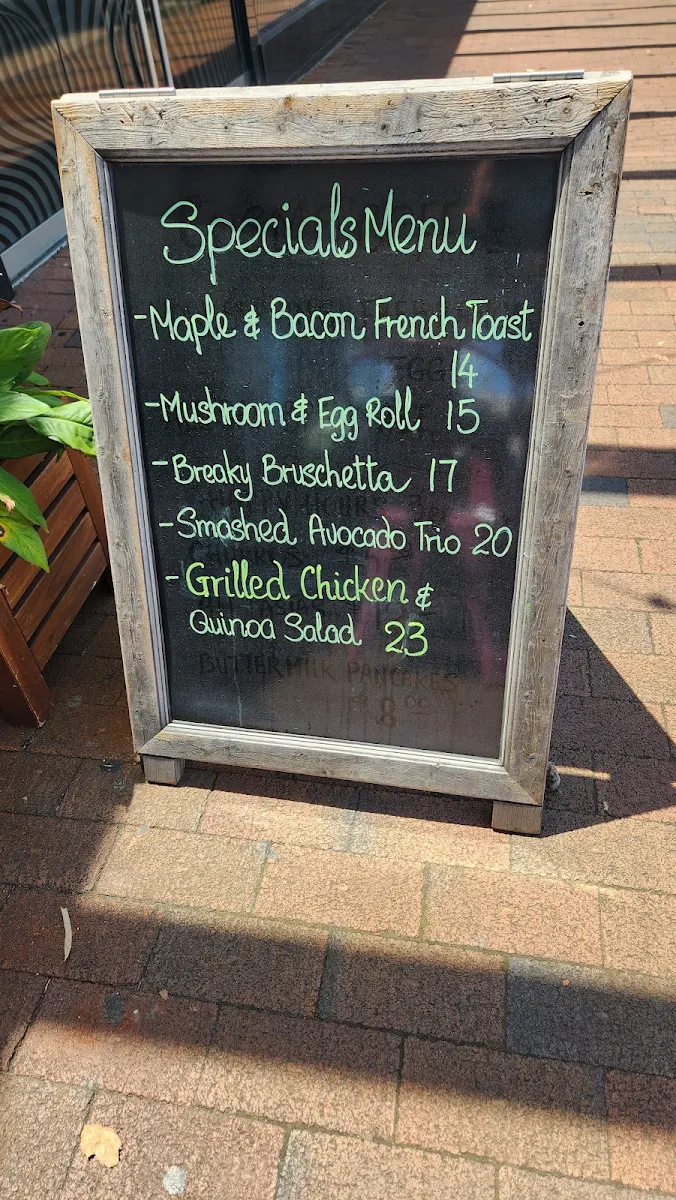 Specials Menu
- Maple & Bacon French Toast
14
- Mushroom & Egg Roll 15
- Breaky Bruschetta 17
- Smashed Avocado Trio 20
- Grilled Chicken &
Quinoa Salad 23
BUTTERMILK PANCAKES
8.00